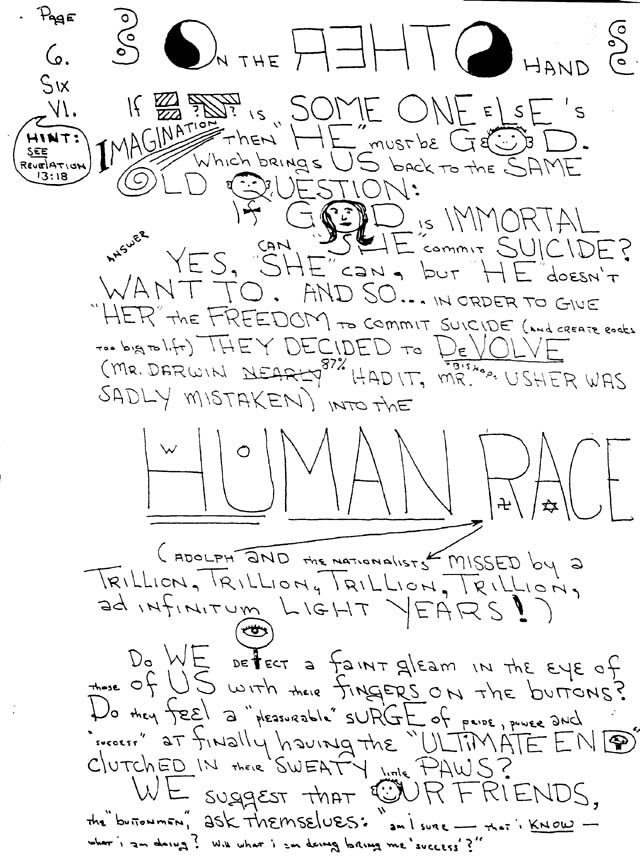 PAGE
6.
SIX
VI.
HINT:
SEE
REVELATION
13:18
ON THE REHTO HAND
If ? ? is SOME ONE ELSE'S
IMAGINATION THEN "HE" MUST BE GOD.
WHICH BRINGS US BACK TO THE SAME
OLD QUESTION:
If GOD is IMMORTAL
CAN "SHE" COMMIT SUICIDE?
ANSWER
YES, "SHE" CAN, but "HE" DOESN'T
WANT TO. AND SO... IN ORDER TO GIVE
"HER" THE FREEDOM TO COMMIT SUICIDE (AND CREATE ROCKS
TOO BIG TO LIFT) THEY DECIDED TO DeVOLVE
(MR. DARWIN NEARLY 87% HAD IT, MR. "BISHOP" USHER WAS
SADLY MISTAKEN) INTO THE
HUMAN RACE
W O 卐 ✡
(ADOLPH AND THE NATIONALISTS MISSED by a
TRILLION, TRILLION, TRILLION, TRILLION,
ad infinitum LIGHT YEARS!)
Do WE DETECT a faint gleam IN THE EYE of
those of US with their fingers ON THE buttons?
Do they feel a "pleasurable" SURGE of pride, power and
"success" AT finally having the "ULTIMATE END"
CLUTCHED IN THEIR SWEATY little PAWS?
WE suggest that OUR FRIENDS,
the "buttonmen", ask themselves: "am I sure — that i KNOW —
what i am doing? Will what i am doing bring me 'success'?"